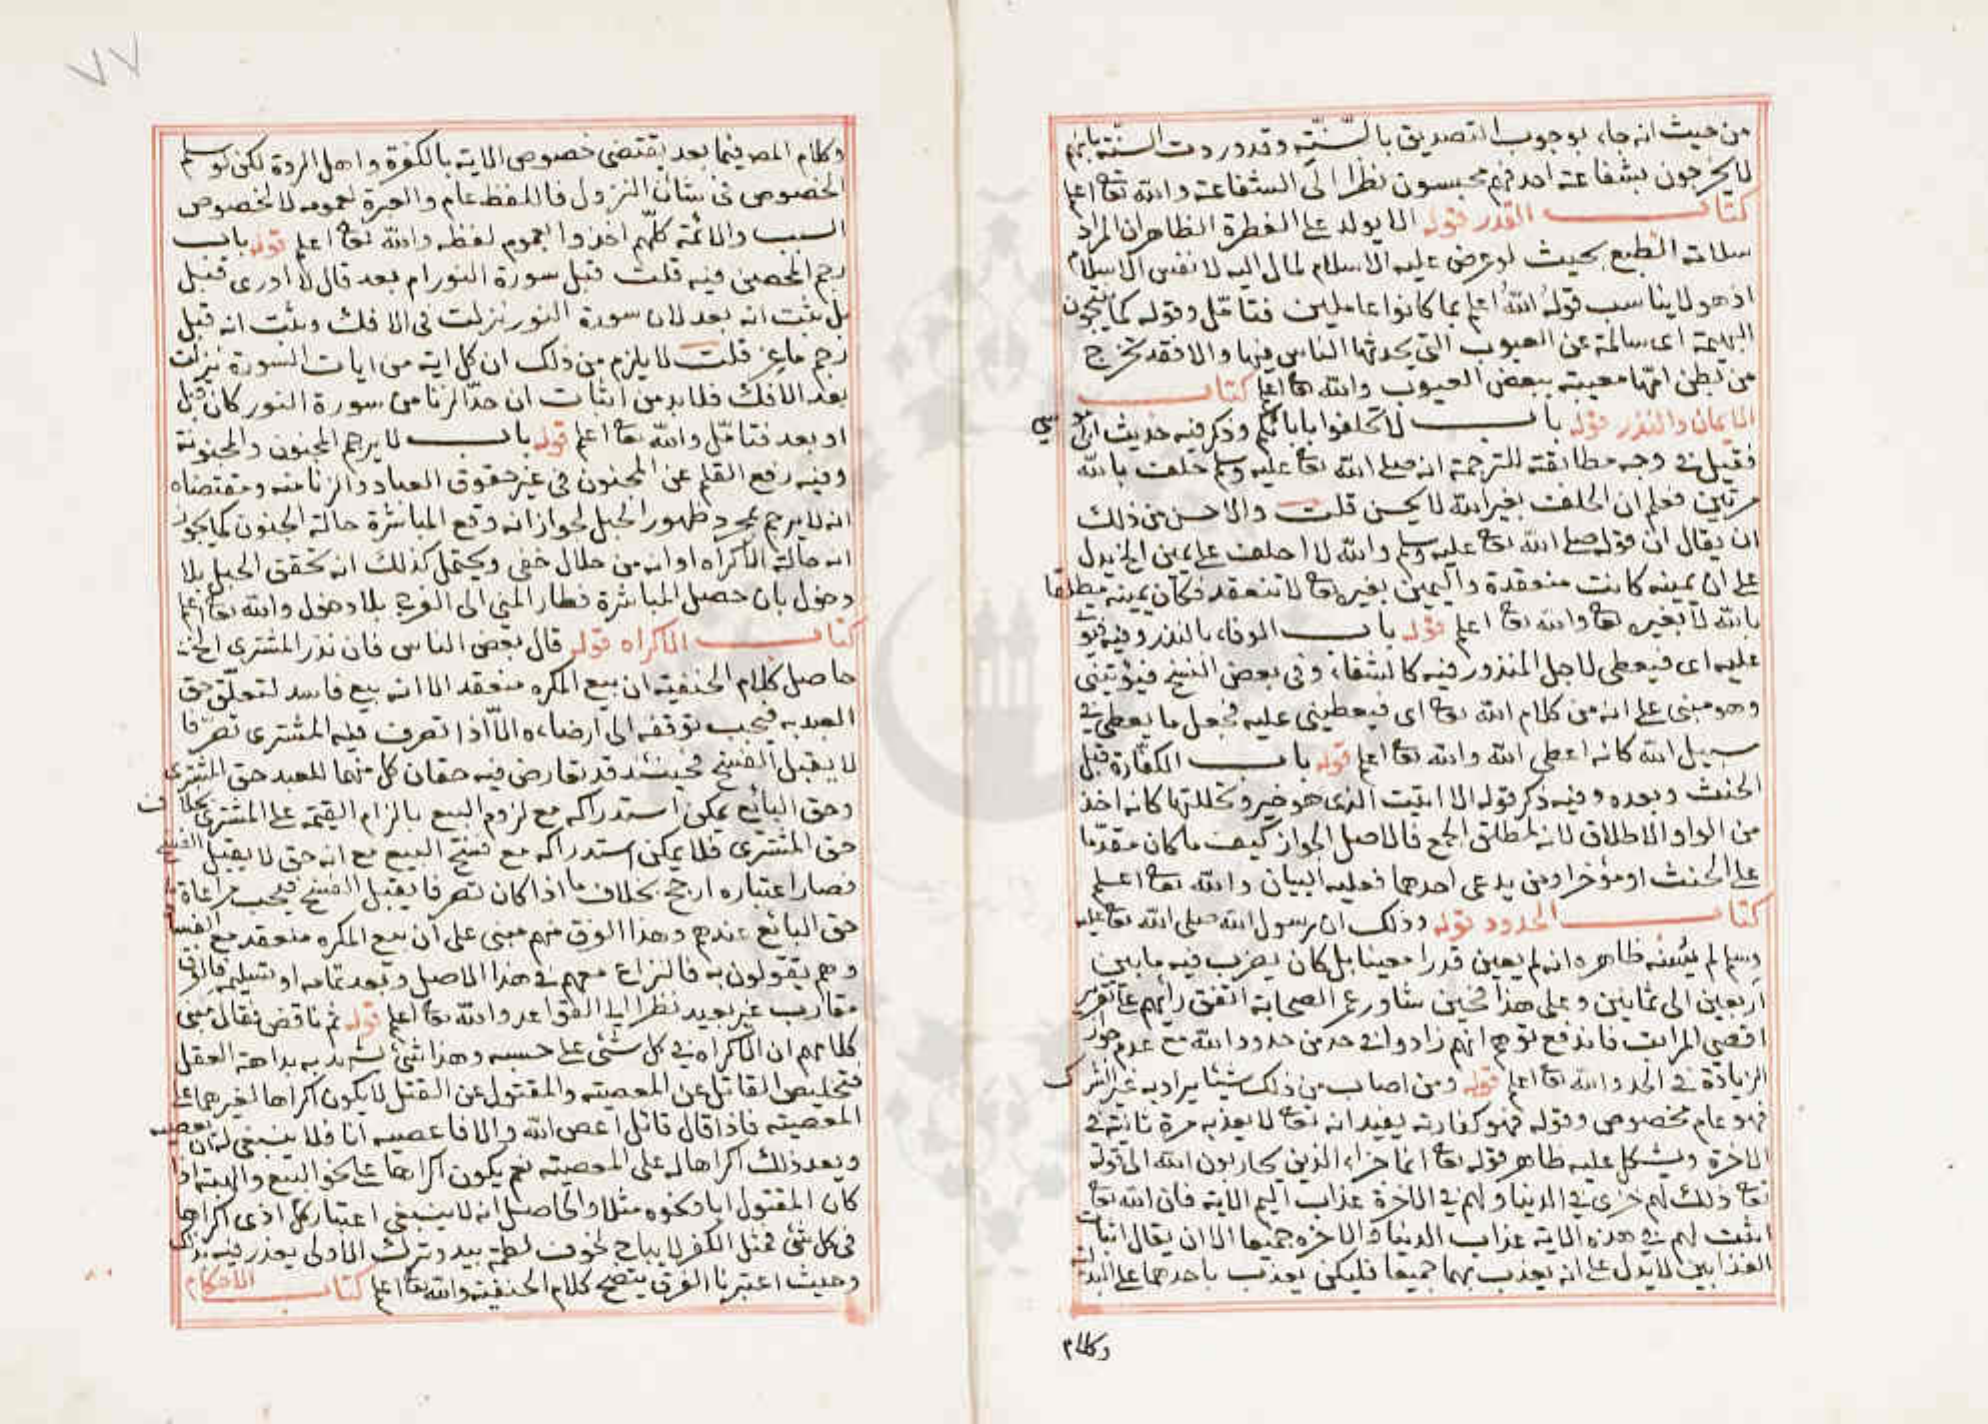 من حيث انه جاء بوجوب التصديق بالسّنّيّه وقد وردت السنّة بانهم
لا يخرجون بشفاعة احد فهم محبسون نظرا الى الشفاعة والله تعا اعلم
كتاب القدر قوله الا يولد على الفطرة الظاهر ان المراد
سلامة الطبع بحيث لو عرض عليه الاسلام لمال اليه لا نفس الاسلام
اذ هو لا يناسب قوله الله اعلم بما كانوا عاملين فتامّل وقوله كما تنتجون
البهيمة اى سالمة عن العيوب التى يحدثها الناس فيها والا فقد تخرج
من بطن امّها معيبة ببعض العيوب والله تعا اعلم كتاب
الايمان والنذر قوله باب لا تحلفوا بابائكم وذكر فيه حديث ابى موسى
فقيل فى وجه مطابقته للترجمة انه صلى الله تعا عليه وسلم حلف بالله
مرتين فعلم ان الحلف بغير الله لا يحسن قلت والاحسن من ذلك
ان يقال ان قوله صلى الله تعا عليه وسلم والله لا احلف على يمين الخ يدل
على ان يمينه كانت منعقدة واليمين بغيره تعا لا تنعقد فكان يمينه مطلقا
بالله لا بغيره تعا والله تعا اعلم قوله باب الوفاء بالنذر وفيه فيؤتى
عليه اى فيعطى لاجل المنذور فيه كالشفاء وفى بعض النسخ فيؤتينى
وهو مبنى على انه من كلام الله تعا اى فيعطينى عليه فجعل ما يعطى فى
سبيل الله كانه اعطى الله والله تعا اعلم قوله باب الكفارة قبل
الحنث وبعده وفيه ذكر قوله الا اتيت الذى هو خير وتحللتها كانه اخذ
من الواو الاطلاق لانه لمطلق الجمع فالاصل الجواز كيف ما كان مقدّما
على الحنث او مؤخرا ومن يدعى احدهما فعليه البيان والله تعا اعلم
كتاب الحدود قوله وذلك ان رسول الله صلى الله تعا عليه
وسلم لم يسنّه ظاهره انه لم يعين قدرا معينا بل كان يضرب فيه ما بين
اربعين الى ثمانين وعلى هذا فحين شاور عمر الصحابة اتفق رأيهم على تقرير
اقصى المراتب فاندفع توهم انهم زادوا فى حد من حدود الله مع عدم جواز
الزيادة فى الحد والله تعا اعلم قوله ومن اصاب من ذلك شيئا يراد به غير الشرك
فهو عام مخصوص وقوله فهو كفارته يفيد انه تعا لا يعذبه مرة ثانية فى
الاخرة ويشكل عليه ظاهر قوله تعا انما جزاء الذين يحاربون الله الى قوله
تعا ذلك لهم خزى فى الدنيا ولهم فى الاخرة عذاب اليم الاية فان الله تعا
اثبت لهم فى هذه الاية عذاب الدنيا والاخره جميعا الا ان يقال اثبات
العذابين لا يدل على انه يعذب بهما جميعا فليكن يعذب باحدهما على البدلية
وكلام
٧٧
وكلام المص فيما بعد يقتضى خصوص الاية بالكفرة واهل الردة لكن لو سلم
الخصوص فى شان النزول فاللفظ عام والعبرة لعمومه لا لخصوص
السبب والائمة كلّهم اخذوا بعموم لفظه والله تعا اعلم قوله باب
رجم المحصن فيه قلت قبل سورة النور ام بعد قال لا ادرى قبل
بل يثبت انه بعد لان سورة النور نزلت فى الافك وثبت انه قبل
رجم ماعز قلت لا يلزم من ذلك ان كل اية من ايات السورة نزلت
بعد الافك فلابد من اثبات ان حدّ الزنا من سورة النور كان قبل
او بعد فتامّل والله تعا اعلم قوله باب لا يرجم المجنون والمجنونة
وفيه رفع القلم عن المجنون فى غير حقوق العباد والزنا منه ومقتضاه
انه لا يرجم بمجرد ظهور الحبل لجواز انه وقع المباشرة حالة الجنون كما يجوز
انه حالة الاكراه او انه من حلال خفى ويحتمل كذلك انه تحقق الحبل بلا
دخول بان حصل المباشرة فطار المنى الى الفرج بلا دخول والله تعا اعلم
كتاب الاكراه قوله قال بعض الناس فان نذر المشترى الخ
حاصل كلام الحنفية ان بيع المكره منعقد الا انه بيع فاسد لتعلّق حق
العبد به فيجب توقفه الى ارضاءه الّا اذا تصرف فيه المشترى تصرّفا
لا يقبل الفسخ فحينئذ قد تعارض فيه حقان كل منهما للعبد حق المشترى
وحق البائع يمكن استدراكه مع لزوم البيع بالزام القيمة على المشترى بخلاف
حق المشترى فلا يمكن استدراكه مع فسخ البيع مع انه حق لا يقبل الفسخ
فصار اعتباره ارجح بخلاف ما اذا كان تصرفا يقبل الفسخ فيجب مراعاة
حق البائع عندهم وهذا الفرق منهم مبنى على ان بيع المكره منعقد مع الفساد
وهم يقولون به فالنزاع معهم فى هذا الاصل وبعد تمامه او تسليمه فالفرق
مقارب غير بعيد نظرا الى القواعد والله تعا اعلم قوله ثم ناقض فقال مبنى
كلامهم ان الاكراه فى كل شئ على حسبه وهذا شئ يشهد به بداهة العقل
فتخليص القاتل عن المعصية والمقتول عن القتل لا يكون اكراها لغيرهما على
المعصية فاذا قال قائل اعص الله والا فاعصيه انا فلا ينبغى له ان يعصيه
ويعد ذلك اكراها له على المعصية نعم يكون اكراها على نحو البيع والهبة اذا
كان المقتول ابا ونحوه مثلا والحاصل انه لا ينبغى اعتبار كل اذى اكراها
فى كل شئ فمثل الكفر لا يباح لخوف لطمة بيد وترك الاولى يعذر فيه بذلك
وحيث اعتبرنا الفرق يتضح كلام الحنفية والله تعا اعلم كتاب الاحكام